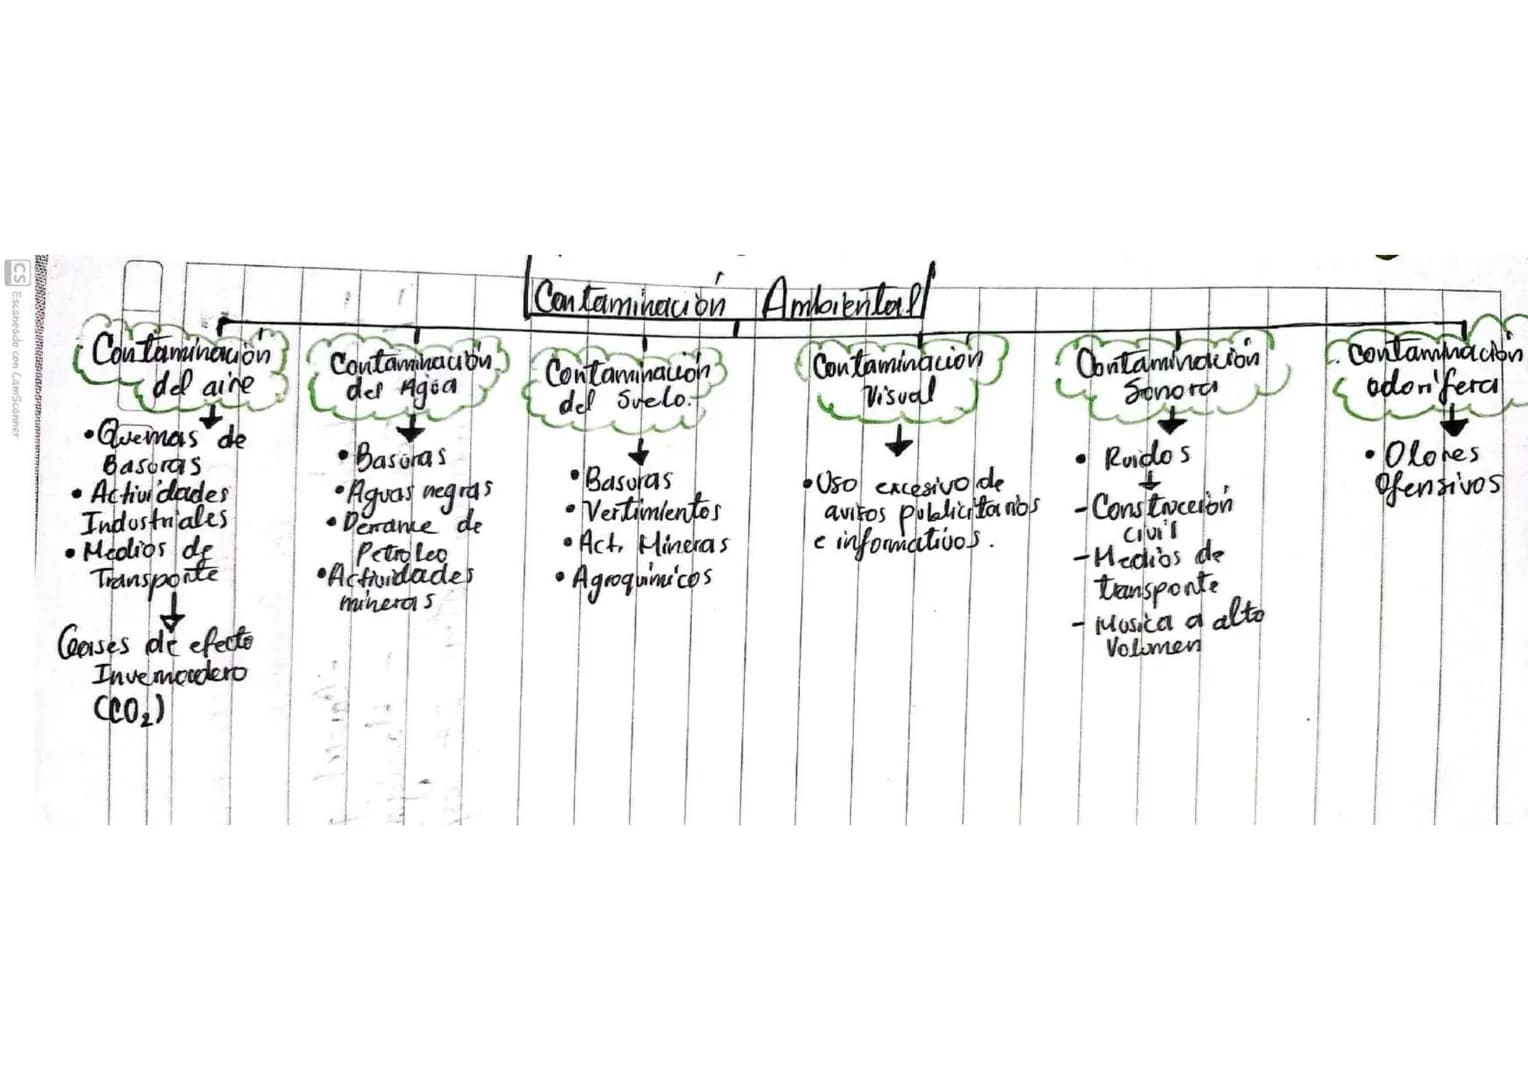 Contaminación Ambiental
Contaminación
del aire
• Quemas de
Basuras
• Actividades
Industriales
• Medios de
Transporte
Gases de efecto
Invernadero
(CO₂)
Contaminación
del Agua
• Basuras
• Aguas negras
• Derrame de
Petroleo
• Actividades
mineras
Contaminación
del Suelo.
• Basuras
• Vertimientos
• Act. Mineras
• Agroquímicos
Contaminacion
Visual
• Uso excesivo de
avisos publicitarios
e informativos.
Contaminación
Sonora
• Ruidos
- Construcción
civil
- Medios de
transporte
- Musica a alto
Volumen
Contaminación
odorífera
• Olores
Ofensivos
CS Escaneado con CamScanner